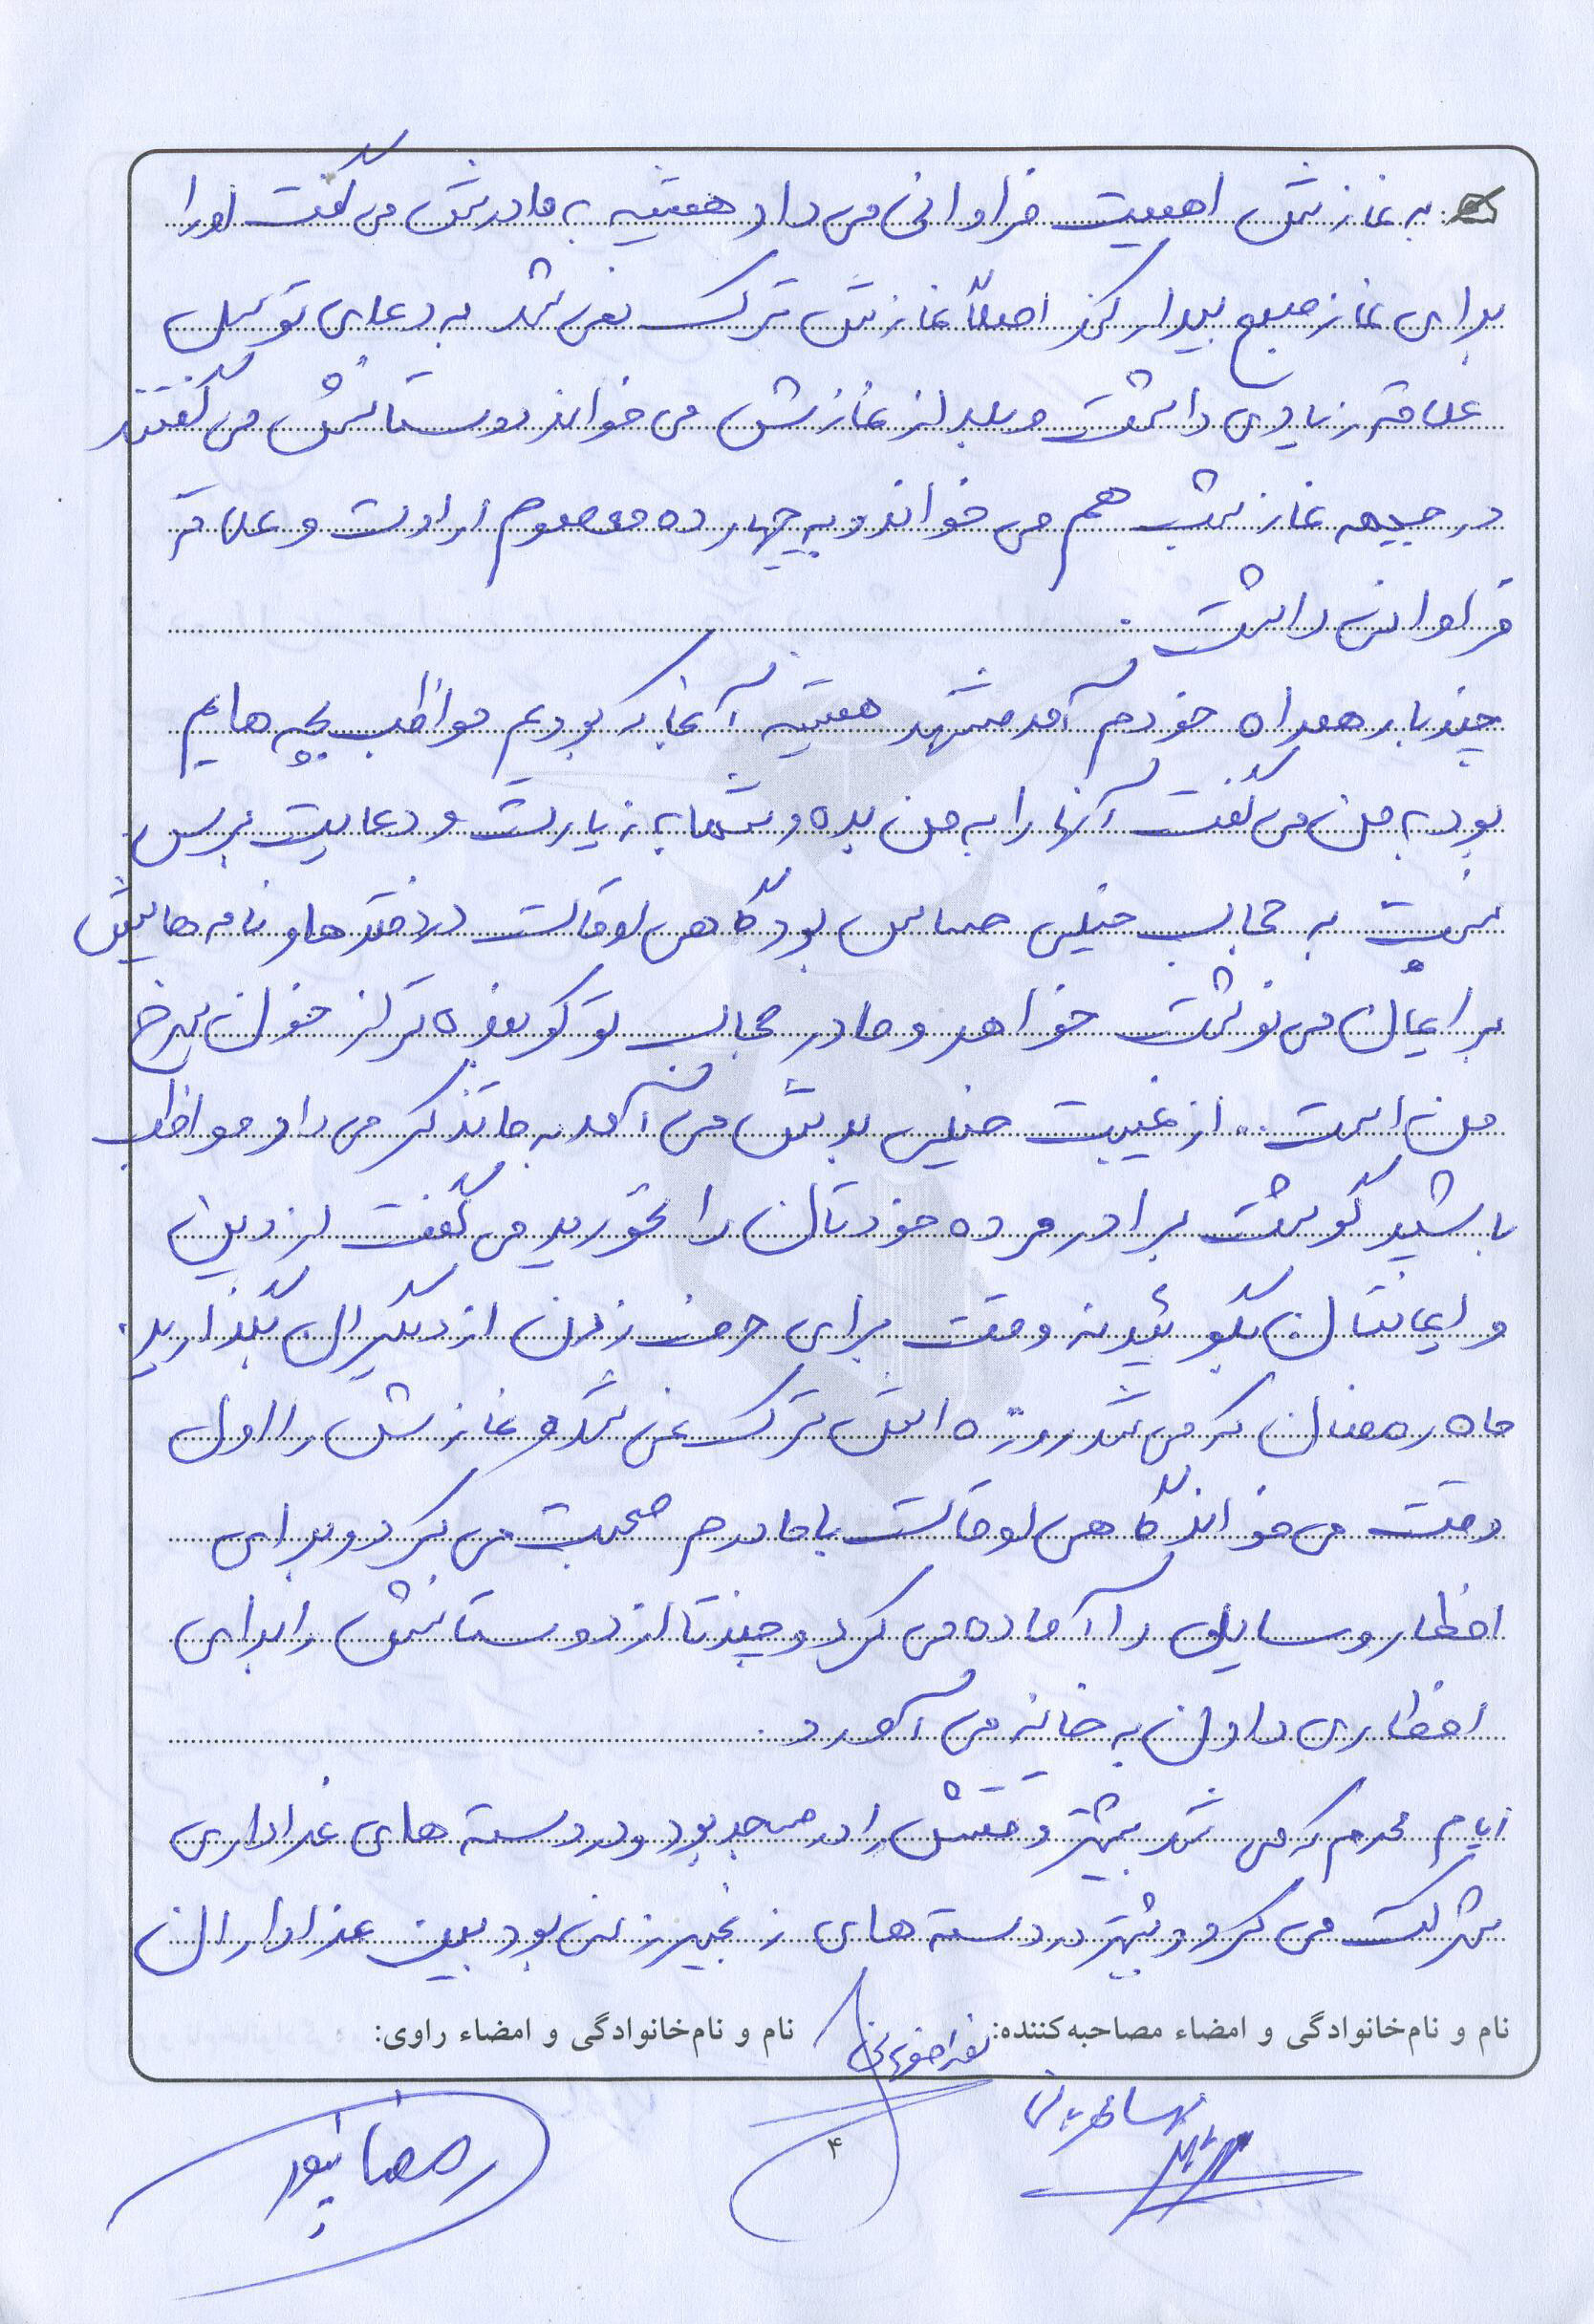 به نمازش اهمیت فراوانی می داد همیشه به مادرش می گفت اورا
برای نماز صبح بیدار کند اصلاً نمازش ترک نمی شد به دعای توسل
علاقه زیادی داشت و بعد از نمازش می خواند دوستانش می گفتند
در جبهه نماز شب هم می خواند و به چهارده معصوم ارادت و علاقه
فراوانی داشت .
چند بار همراه خودم آمد مشهد همیشه آنجا که بودیم مواظب بچه هایم
بود به من می گفت آنها را به من بده و شما به زیارت و دعایت برس
نسبت به حجاب خیلی حساس بود گاهی اوقات در دفترها و نامه هایش
برایمان می نوشت خواهر و مادر حجاب تو کوبنده تر از خون سرخ
من است .. از غیبت خیلی بدش می آمد به ما تذکر می داد مواظب
باشید گوشت برادر مرده خودتان را نخورید می گفت از دین
و ایمانتان بگوئید نه وقت برای حرف زدن از دیگران بگذارید .
ماه رمضان که می شد روزه اش ترک نمی شد و نمازش را اول
وقت می خواند گاهی اوقات با مادرم صحبت می کرد و برای
افطار وسایل را آماده می کرد و چند تا از دوستانش را برای
افطاری دادن به خانه می آورد .
ایام محرم که می شد بیشتر وقتش را در مسجد بود و در دسته های عزاداری
شرکت می کرد و بیشتر در دسته های زنجیرزنی بود بین عزاداران
نام و نام‌خانوادگی و امضاء مصاحبه‌کننده: نام و نام‌خانوادگی و امضاء راوی:
رمضانپور
۴